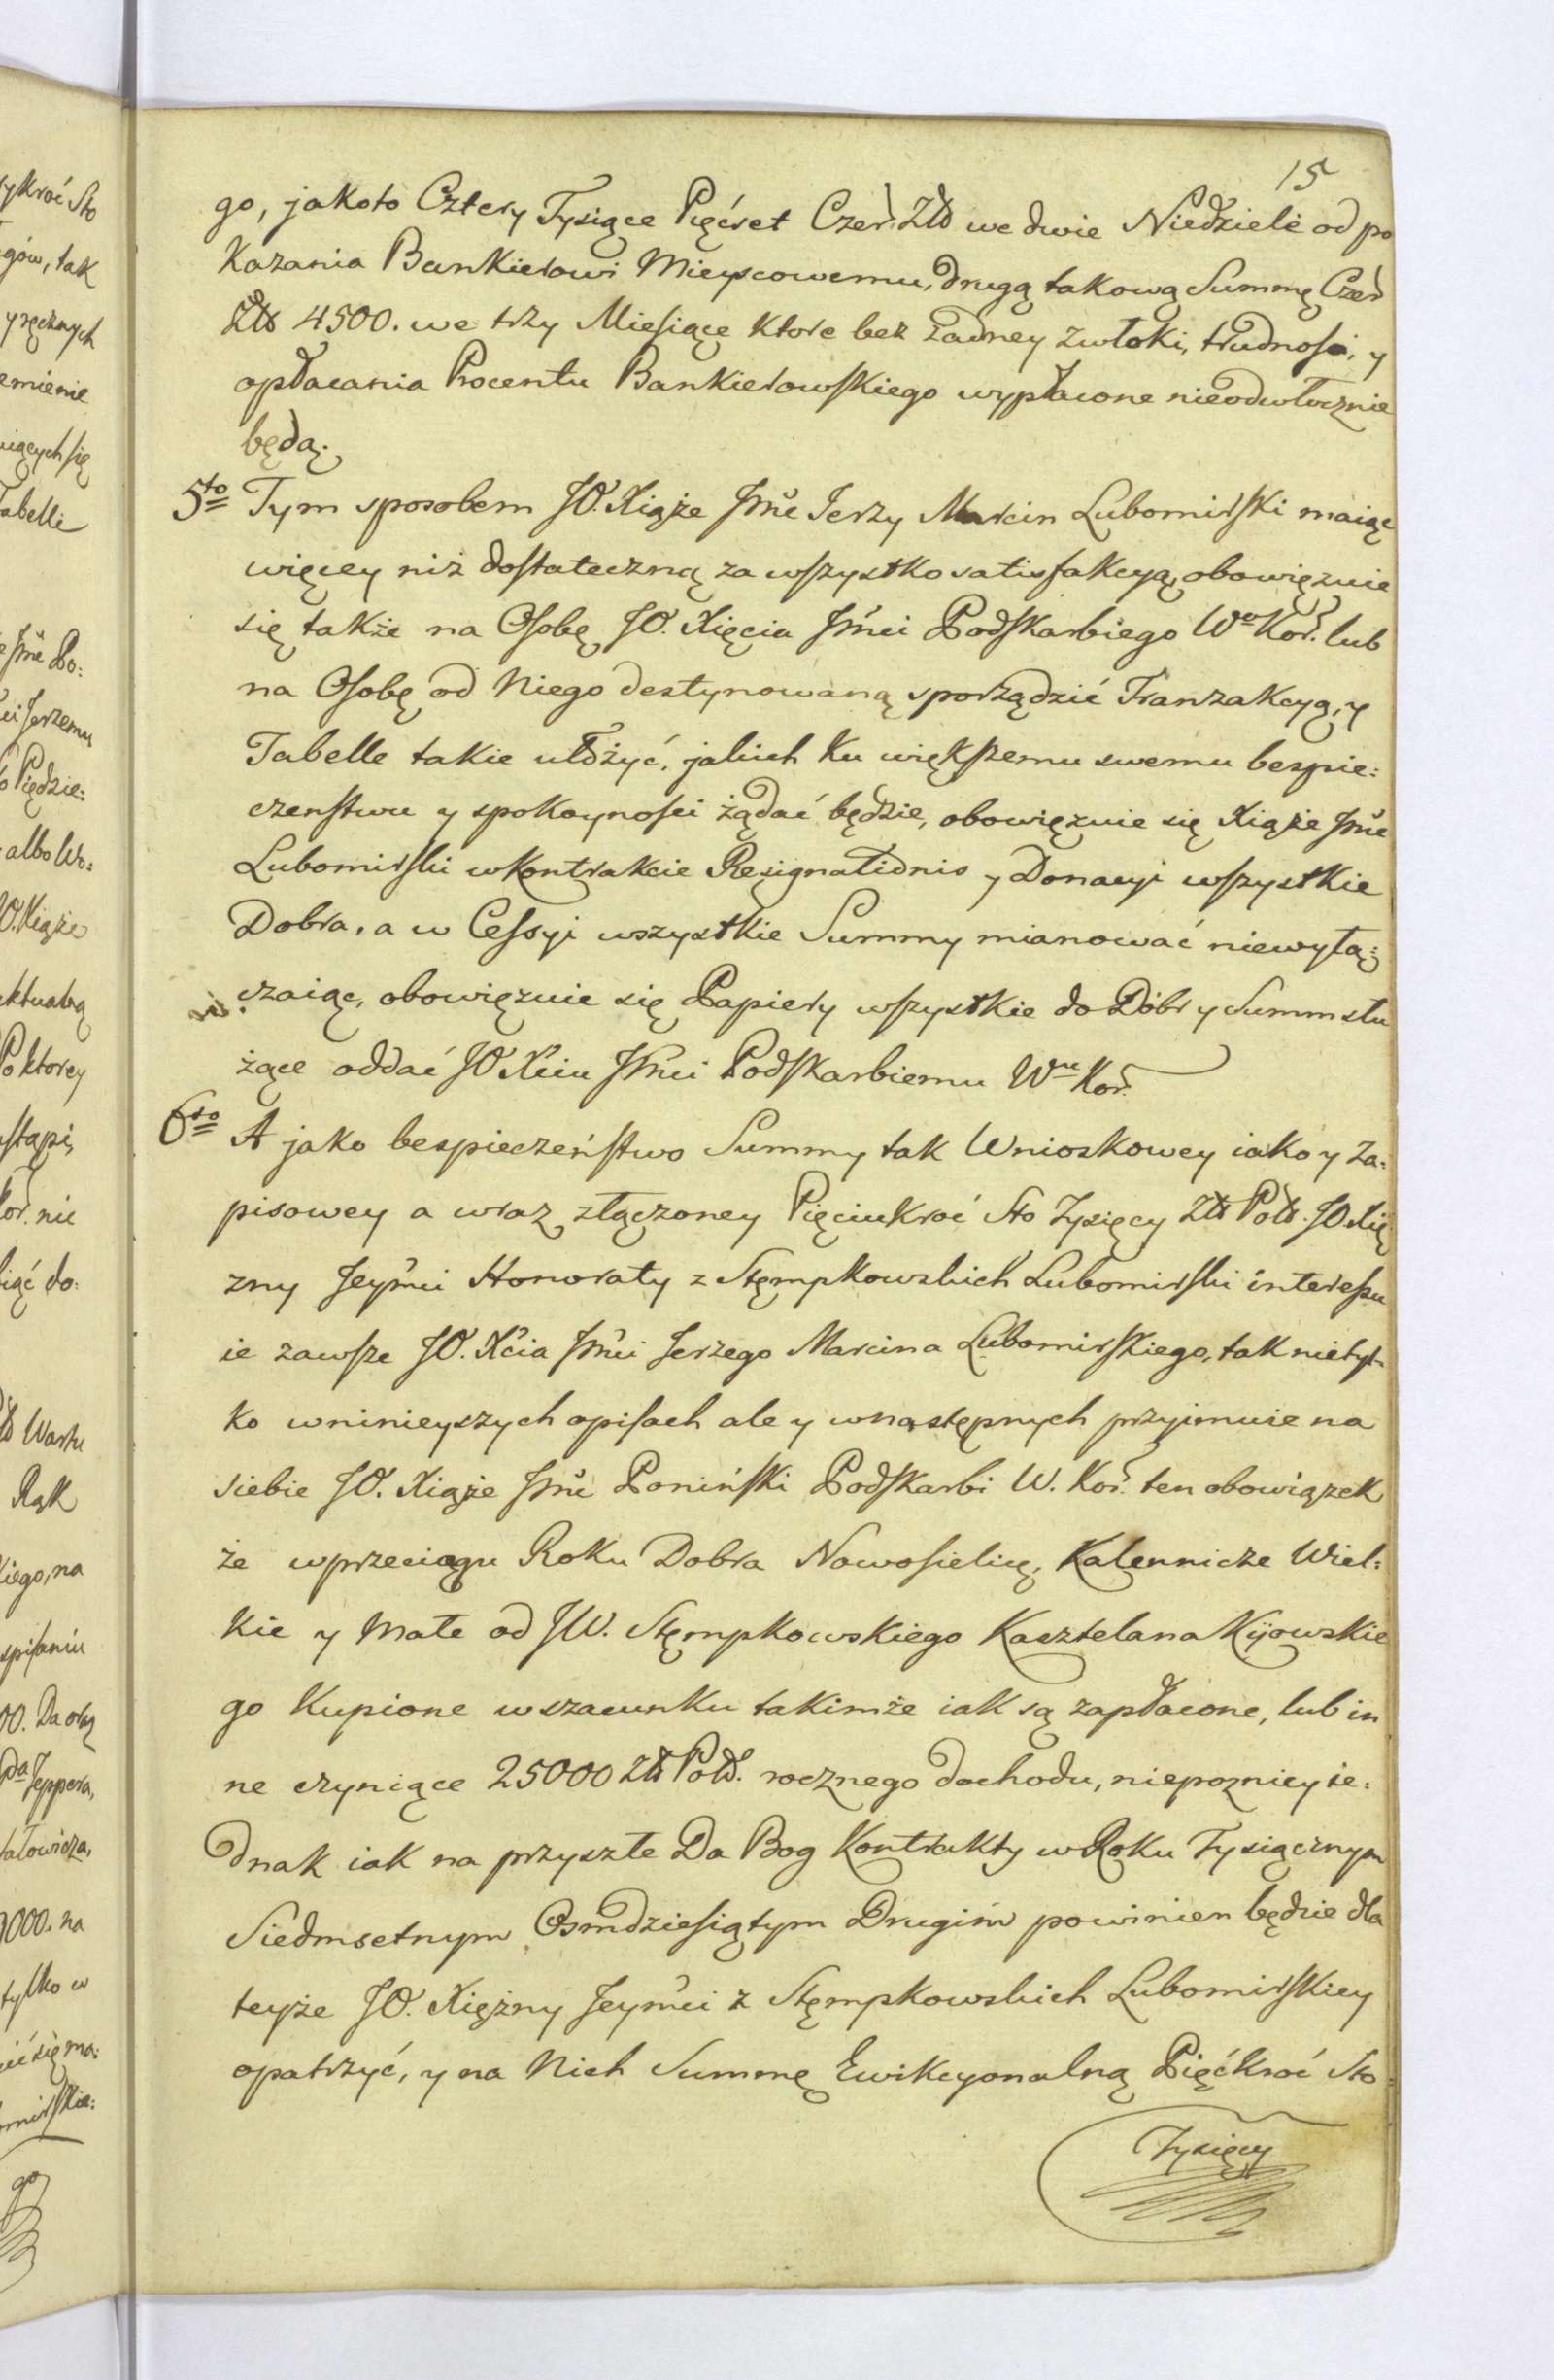 15
go, jakoto Cztery Tysiące Pięćset Czer. Złł we dwie Niedziele od po
Kazania Bankierowi Mieyscowemu, drugą takową Summę Czer
Złł 4500. we trzy Miesiące Ktore bez żadney zwłoki, trudności, y
opłacania Procentu Bankierowskiego wypłacone nieodwłocznie
będą.
5to Tym sposobem JO. Xiąże Jmć Jerzy Marcin Lubomirski maiąc
więcey niż dostateczną za wszystko satisfakcyą, obowięzuie
się także na Osobę JO. Xięcia Jmci Podskarbiego Wo Kor. lub
na Osobę od Niego destynowaną sporządzić Tranzakcyą, y
Tabelle takie ułożyć, jakich Ku większemu swemu bespie:
czenstwu y spokoynosci żądać będzie, obowięzuie się Xiąże Jmć
Lubomirski w Kontrakcie Resignationis y Donacyi wszystkie
Dobra, a w Cessyi wszystkie Summy mianować niewyłą:
czaiąc, obowięzuie się Papiery wszystkie do Dóbr y Summ słu
żące oddać JO Xciu Jmci Podskarbiemu Wu Kor.
6to A jako bespieczeństwo Summy tak Wnioskowey iako y Za:
pisowey a wraz złączoney Pięciukroć Sto Tysięcy Złł Pols. JO. Xię
zny Jeymci Honoraty z Stępkowskich Lubomirski interessu
ie zawsze JO. Xcia Jmci Jerzego Marcina Lubomirskiego, tak nietyl-
ko wninieyszych opisach ale y wnastępnych przyimuie na
siebie JO. Xiąże Jmć Poniński Podskarbi W. Kor. ten obowiązek
że wprzeciągu Roku Dobra Nowosielicę, Kalennicze Wiel:
kie y Małe od JW. Stęmpkowskiego Kasztelana Kijowskie
go Kupione wszacunku takimże iak są zapłacone, lub in
ne czyniące 25000 Złł Pols. rocznego dochodu, niepozniey ie:
dnak iak na przyszłe Da Bog Kontrakty w Roku Tysiącznym
Siedmsetnym Osmdziesiątym Drugim powinien będzie dla
teyże JO. Xiężny Jeymci z Stęmpkowskich Lubomirskiey
opatrzyć, y na Nich Summę Ewikcyonalną Pięćkroć Sto
Tysięcy